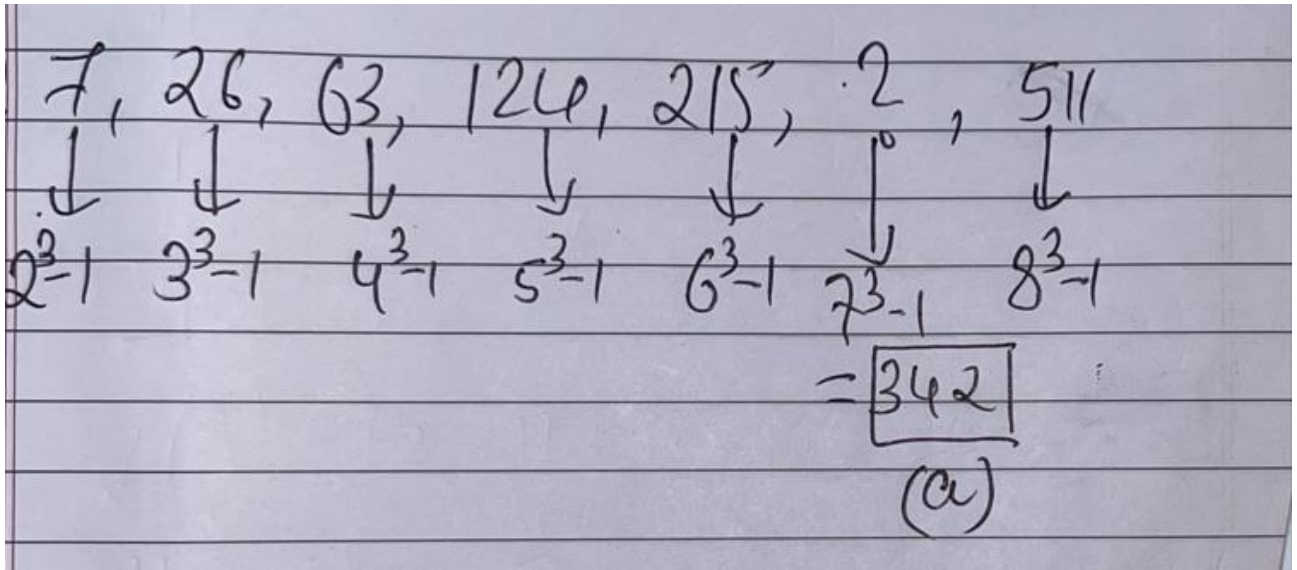 7, 26, 63, 124, 215, ?, 511
↓ ↓ ↓ ↓ ↓ ↓ ↓
2³-1 3³-1 4³-1 5³-1 6³-1 7³-1 8³-1
= 342
(a)